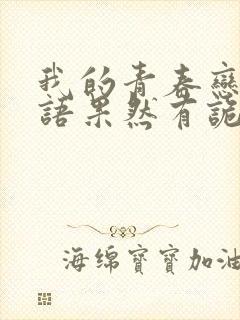 我的青春戀
語果然有詭
海绵寶寶加油